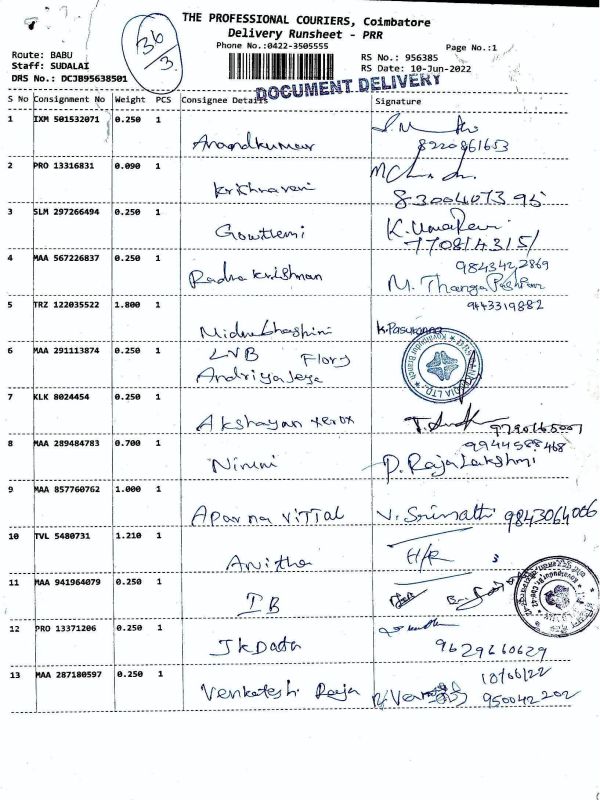 36/3.
THE PROFESSIONAL COURIERS, Coimbatore
Delivery Runsheet - PRR
Phone No.:0422-3505555
Page No.:1
Route: BABU
Staff: SUDALAI
DRS No.: DCJB95638501
RS No.: 956385
RS Date: 10-Jun-2022
DOCUMENT DELIVERY
S No Consignment No Weight PCS Consignee Details Signature
1 IXM 501532071 0.250 1 Anandkumar
8220861653
2 PRO 13316831 0.090 1 Krishnaveni
8300407395
3 SLM 297266494 0.250 1 Gowtlemi K. UmaDevi
770814315/
4 MAA 567226837 0.250 1 Radha krishnan
9843422869
M. Thanga
9443319882
5 TRZ 122035522 1.800 1
6 MAA 291113874 0.250 1 LVB Flory
7 KLK 8024454 0.250 1 Akshayan xerox
8 MAA 289484783 0.700 1
9944588468
P. RajaLakshmi
9 MAA 857760762 1.000 1 Aparna vittal V. Srimathi 9843064006
10 TVL 5480731 1.210 1 Anitha H/R
11 MAA 941964079 0.250 1 IB
12 PRO 13371206 0.250 1 JkData
9629660629
10/06/22
13 MAA 287180597 0.250 1 Venkatesh Raja
950042202